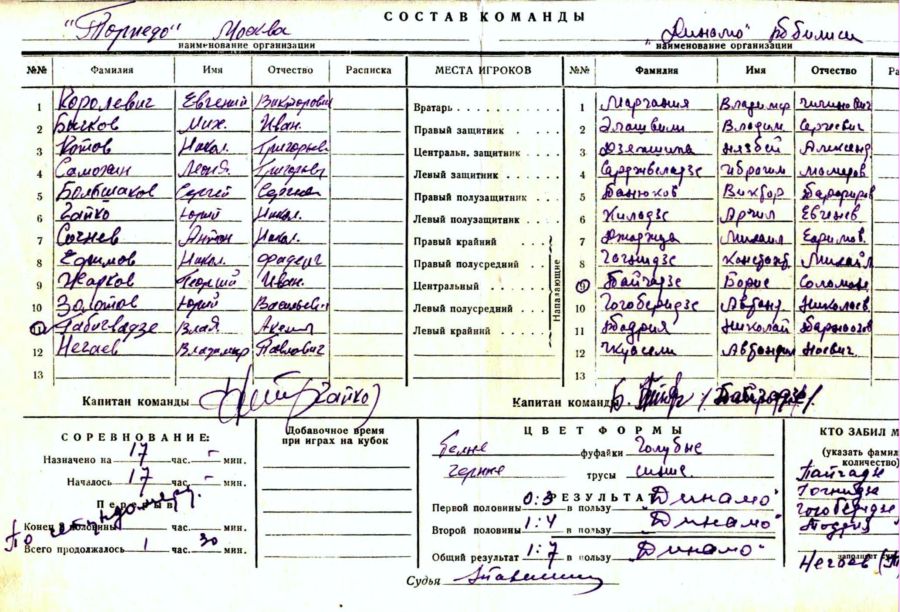 СОСТАВ КОМАНДЫ
"Торпедо" Москва
наименование организации
"Динамо" Тбилиси
наименование организации
№№ Фамилия Имя Отчество Расписка МЕСТА ИГРОКОВ №№ Фамилия Имя Отчество Ра
1 Королевич Евгений Викторович Вратарь 1 Маргания Владимир
2 Бычков Мих. Иван. Правый защитник 2 Элошвили Владим Сергеевич
3 Котов Никол. Григорьев Центральн. защитник 3 Дзяпшипа Ниязбей Александ
4 Леонид Григорьев Левый защитник 4 Сарджвеладзе Иброгим
5 Большаков Сергей Сергеев Правый полузащитник 5 Банюков Виктор
6 Гайко Юрий Никол. Левый полузащитник 6 Киладзе Арчил Евгенев
7 Сочнев Антон Никол. Правый крайний 7 Джоджуа Михаил Ефимов.
8 Ефимов Никол. Фадеич Правый полусредний 8 Гогнидзе Константи Михайл
9 Жарков Георгий Иван. Центральный 9 Пайчадзе Борис Соломон
10 Золотов Юрий Васильевич Левый полусредний 10 Гогоберидзе Автанд Николаев
11 Табигвадзе Влад Левый крайний 11 Тодрия Николай
12 Нечаев Владимир Павлович 12 Чкуасели Автандил Ноевич
13 13
Нападающие
Капитан команды (Гайко) Капитан команды. Б. Пайч / Пайчадзе /.
СОРЕВНОВАНИЕ:
Назначено на 17 час. - мин.
Началось 17 час. - мин.
Перерыв
Конец половины час. мин.
По секундомеру.
Всего продолжалось 1 час. 30 мин.
Добавочное время
при играх на кубок
ЦВЕТ ФОРМЫ
Белые фуфайки Голубые
черные трусы синие
РЕЗУЛЬТАТ
Первой половины 0:3 в пользу "Динамо"
Второй половины 1:4 в пользу "Динамо"
Общий результат 1:7 в пользу "Динамо"
Судья
КТО ЗАБИЛ М
(указать фамил
количество)
Пайчадзе
Гогнидзе
Гогоберидзе
Тодрия
заполняет суд
Нечаев (Т